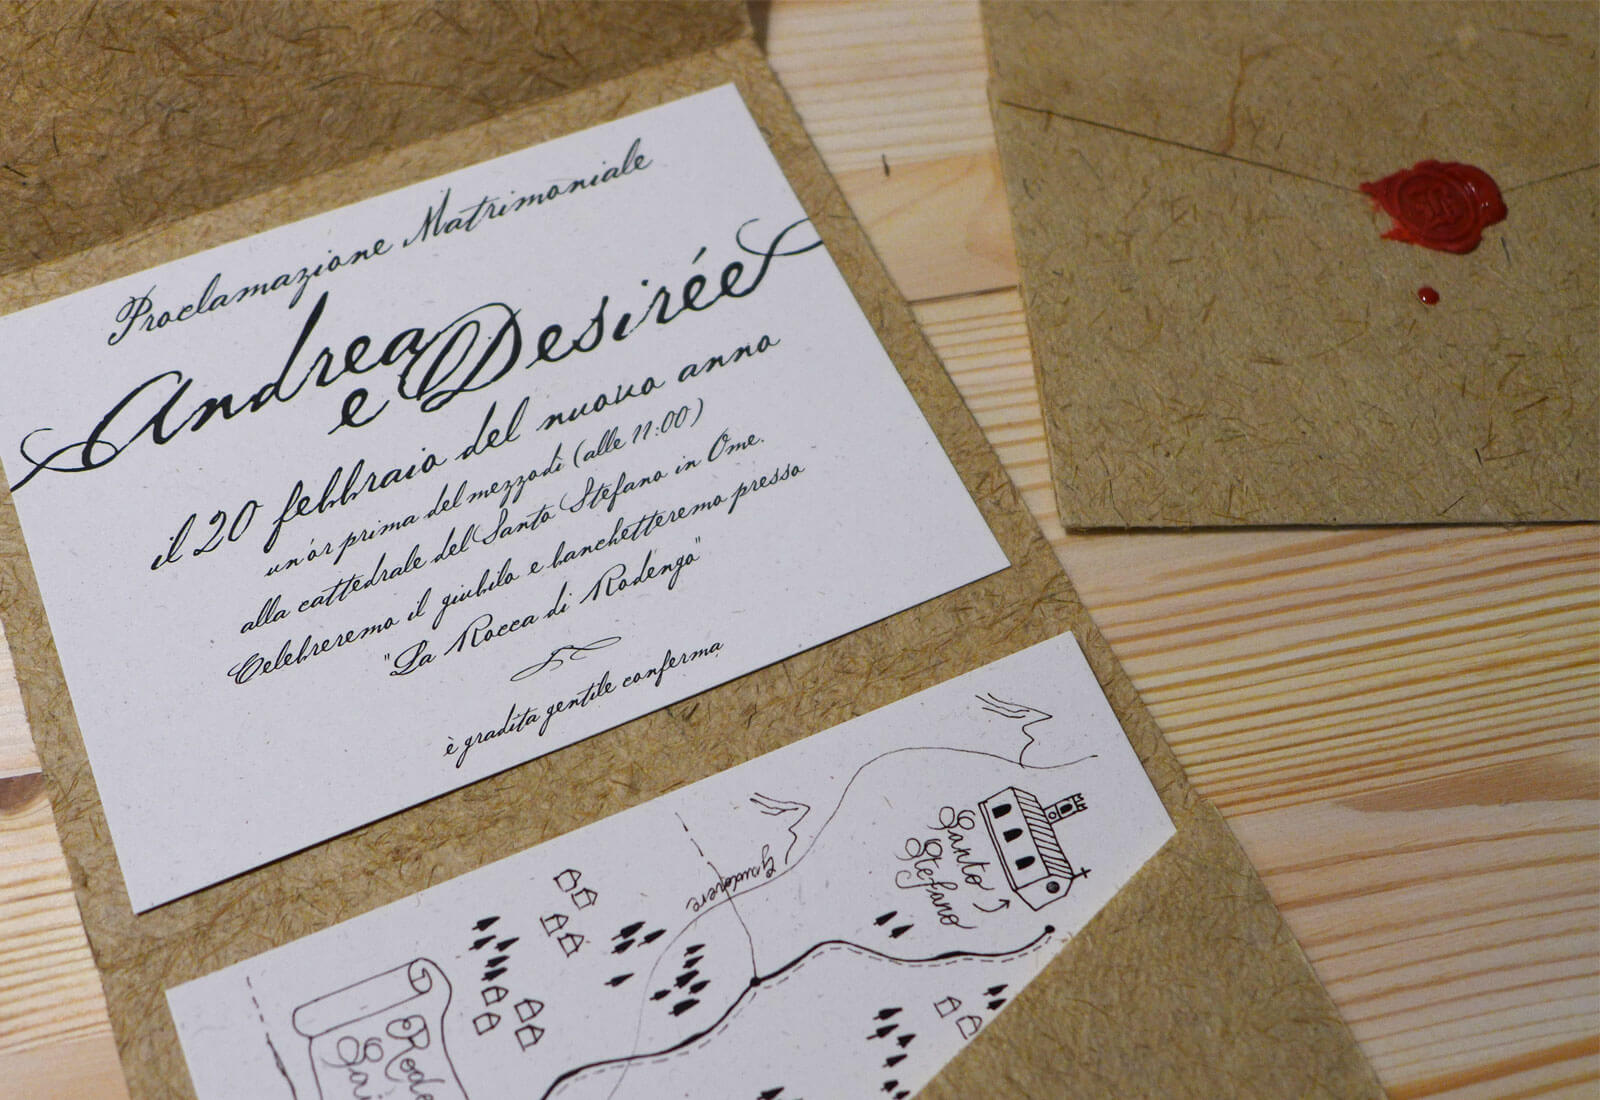 Proclamazione Matrimoniale
Andrea
e Desirée
il 20 febbraio del nuovo anno
un'or prima del mezzodì (alle 11:00)
alla cattedrale del Santo Stefano in Ome.
Celebreremo il giubilo e banchetteremo presso
"La Rocca di Rodengo"
è gradita gentile conferma
Santo
Stefano